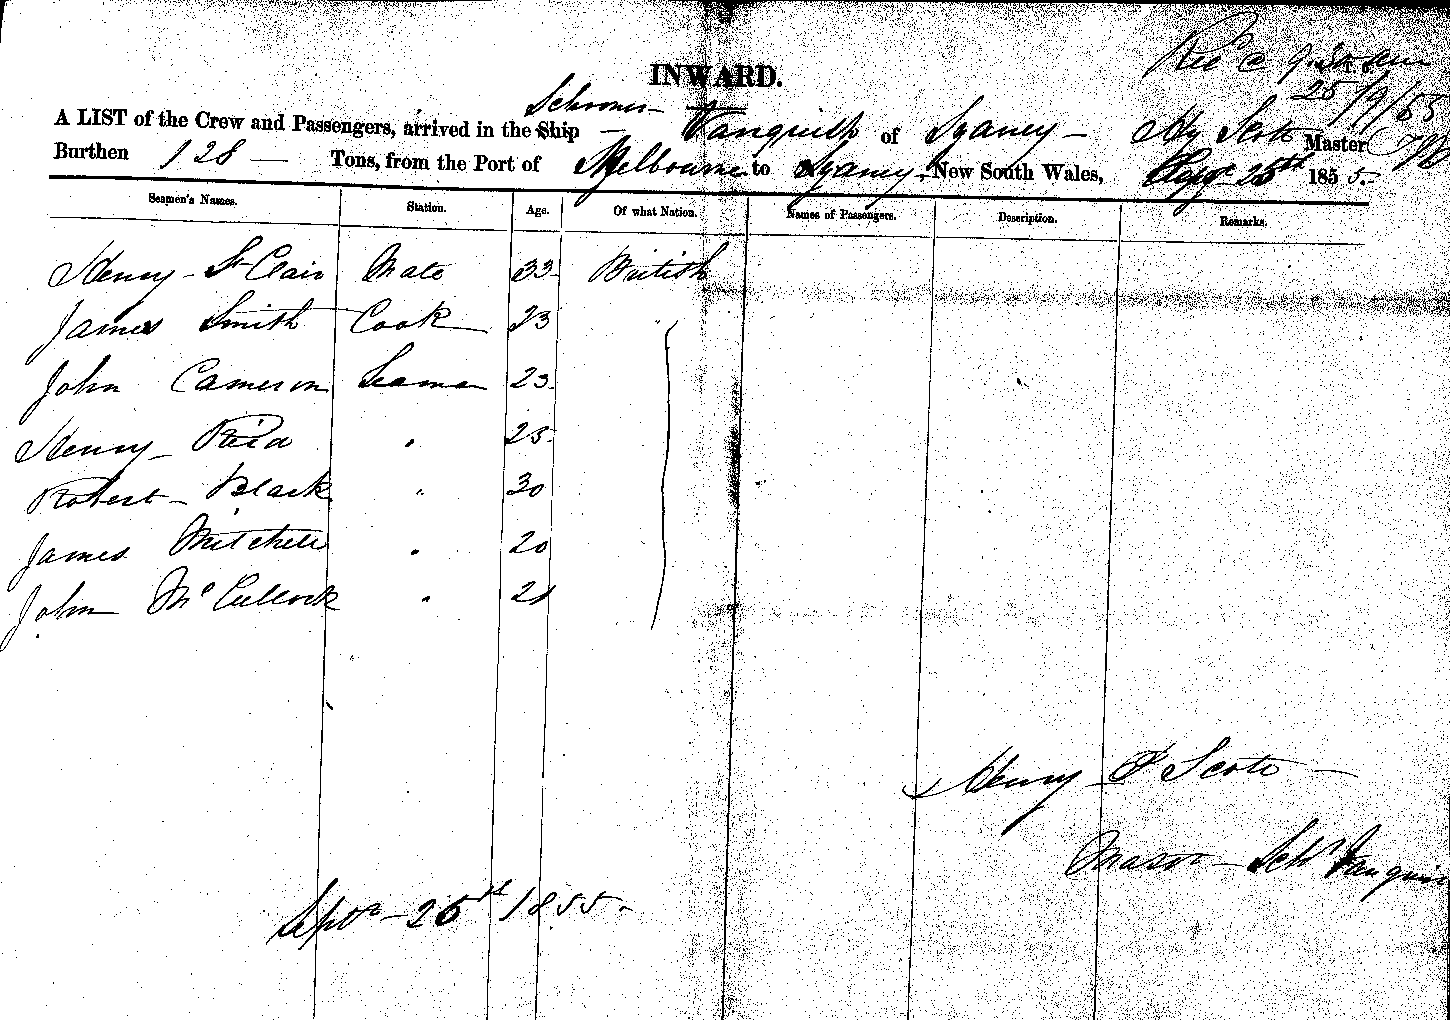 INWARD.
25/9/55
Schooner
A LIST of the Crew and Passengers, arrived in the Ship Vanquish of Sydney Hy Scott Master
Burthen 128 Tons, from the Port of Melbourne to Sydney New South Wales, 25th 1855.
Seamen's Names. Station. Age. Of what Nation. Names of Passengers. Description. Remarks.
Henry St Clair Mate 33 British
James Smith Cook 23 "
John Cameron Seaman 23
Henry Reid " 25
Robert Black " 30
James Mitchell " 20
John McCullock " 21
Henry Scott
Master Schr Vanquish
Septr 1855